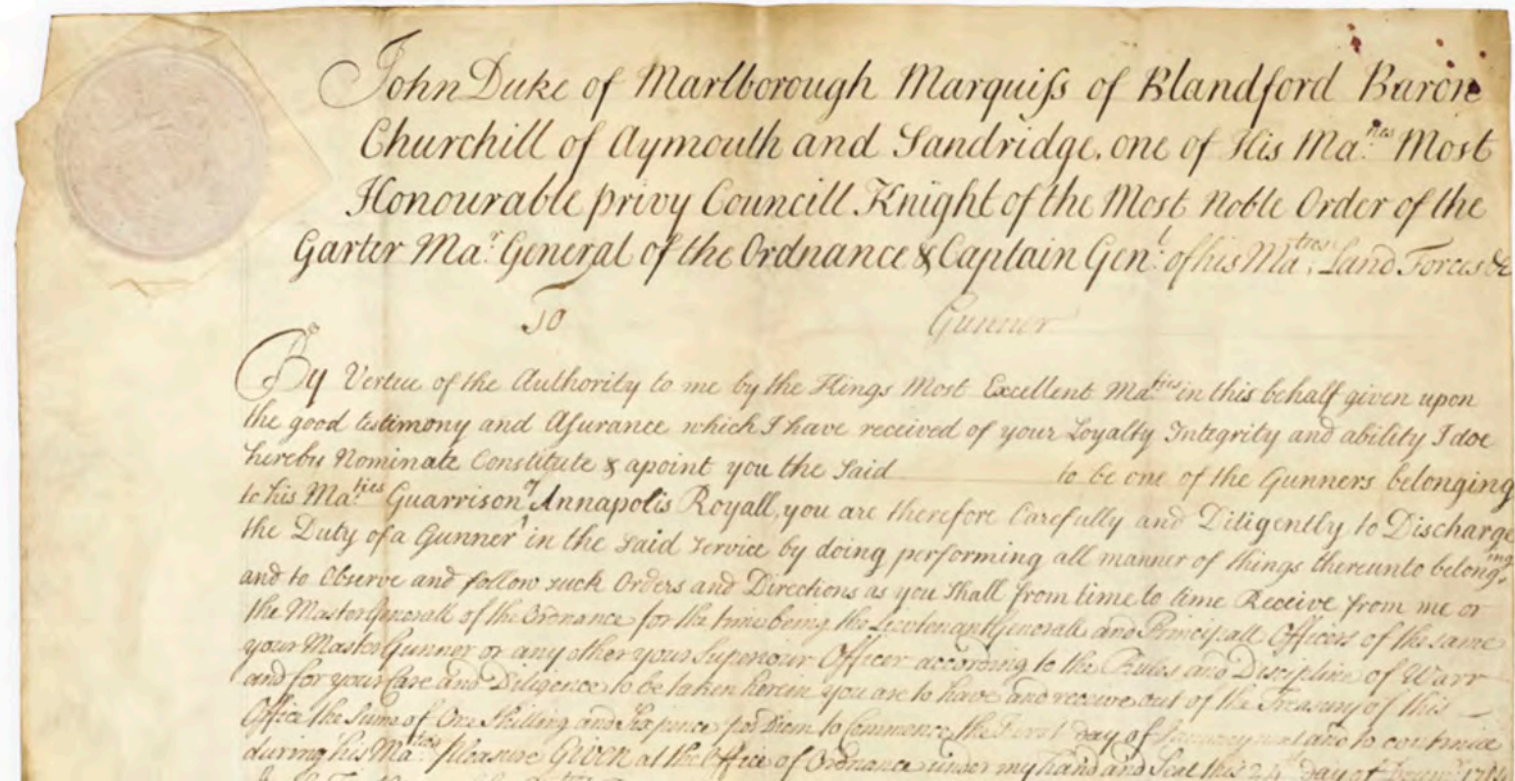 John Duke of Marlborough Marquiſs of Blandford Baron
Churchill of Aymouth and Sandridge, one of His Ma.ties Most
Honourable privy Councill Knight of the Most Noble Order of the
Garter Ma.r General of the Ordnance & Captain Gen.l of his Ma.ties Land Forces &c
To Gunner
By Vertue of the Authority to me by the Kings Most Excellent Ma.ties in this behalf given upon
the good testimony and Aſurance which I have received of your Loyalty Integrity and ability I doe
hereby Nominate Constitute & apoint you the Said to be one of the Gunners belonging
to his Ma.ties Guarrison of Annapolis Royall, you are therefore Carefully and Diligently to Discharge
the Duty of a Gunner in the said service by doing performing all manner of things thereunto belong.ing
and to Observe and follow such Orders and Directions as you Shall from time to time Receive from me or
the Master Generall of the Ordnance for the time being the Lieutenant Generall and Principall Officers of the same
your Master Gunner or any other your Superiour Officer according to the Rules and Discipline of Warr
and for your Care and Diligence to be taken herein you are to have and receive out of the Treasury of this
Office the Sume of One Shilling and Six pence per Diem to Commence the First day of and to continue
during his Ma.ties Pleasure Given at the Office of Ordnance under my hand and Seal this 24 day of